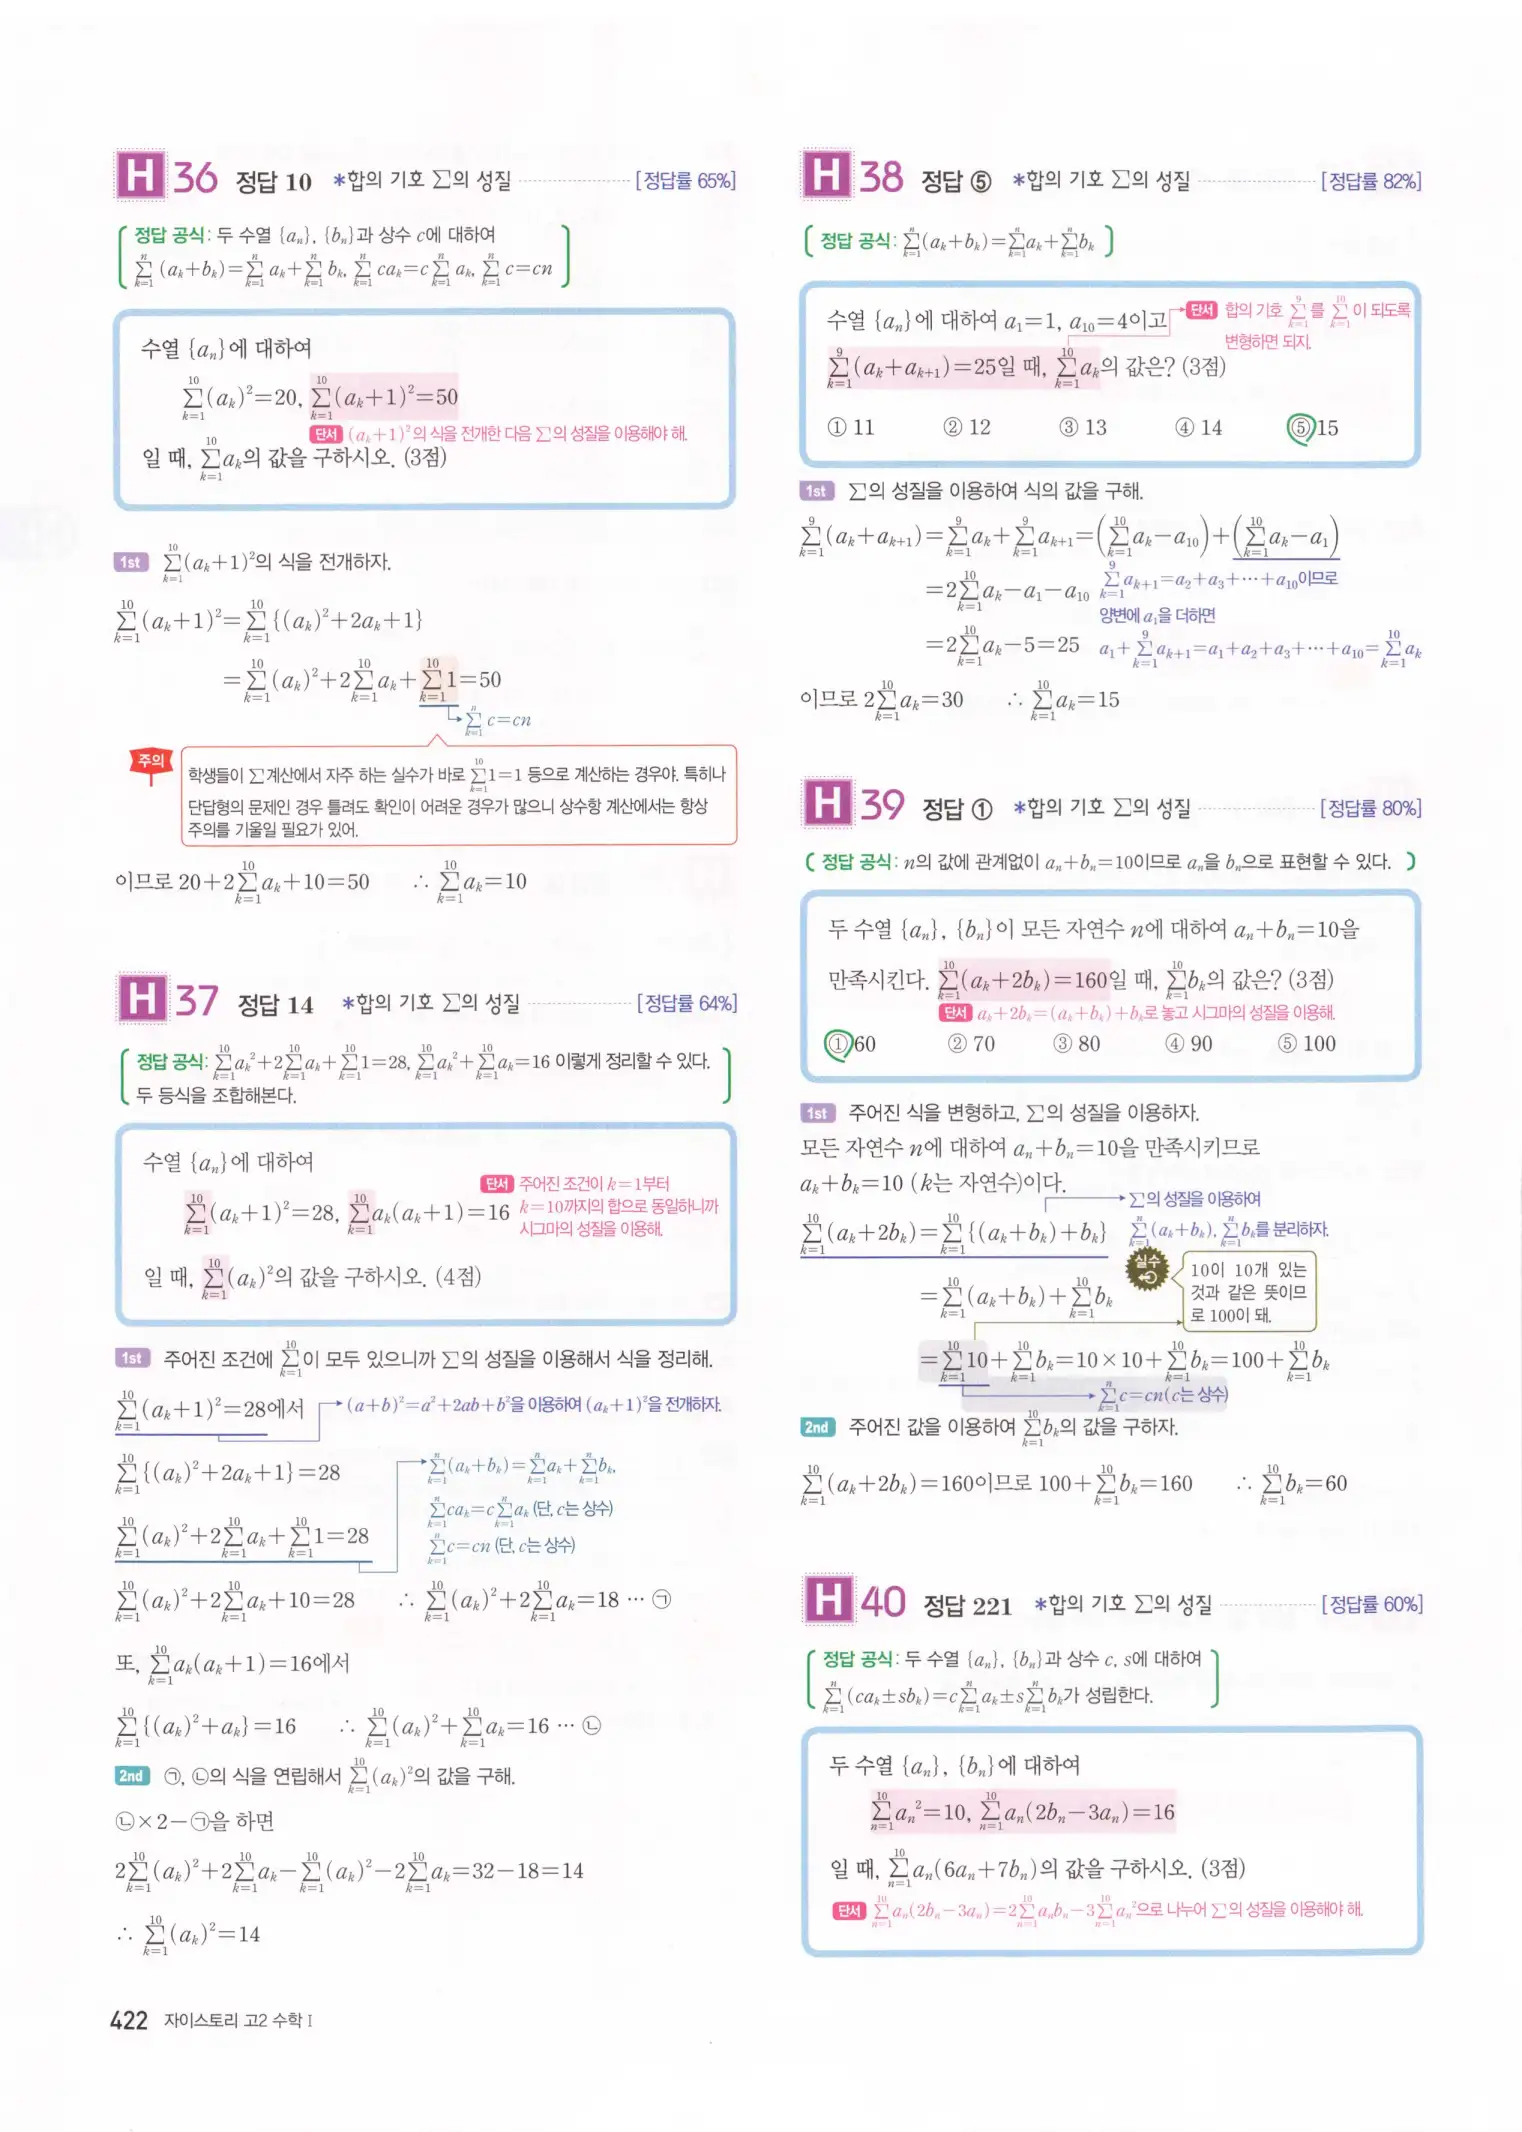 H 36 정답 10 *합의 기호 ∑의 성질 [정답률 65%]
정답 공식: 두 수열 {aₙ}, {bₙ}과 상수 c에 대하여
∑_{k=1}^{n} (aₖ+bₖ)=∑_{k=1}^{n} aₖ+∑_{k=1}^{n} bₖ, ∑_{k=1}^{n} caₖ=c∑_{k=1}^{n} aₖ, ∑_{k=1}^{n} c=cn
수열 {aₙ}에 대하여
∑_{k=1}^{10}(aₖ)²=20, ∑_{k=1}^{10}(aₖ+1)²=50
단서 (aₖ+1)²의 식을 전개한 다음 ∑의 성질을 이용해야 해.
일 때, ∑_{k=1}^{10}aₖ의 값을 구하시오. (3점)
1st ∑_{k=1}^{10}(aₖ+1)²의 식을 전개하자.
∑_{k=1}^{10}(aₖ+1)²=∑_{k=1}^{10}{(aₖ)²+2aₖ+1}
=∑_{k=1}^{10}(aₖ)²+2∑_{k=1}^{10}aₖ+∑_{k=1}^{10}1=50
∑_{k=1}^{n} c=cn
주의
학생들이 ∑계산에서 자주 하는 실수가 바로 ∑_{k=1}^{10}1=1 등으로 계산하는 경우야. 특히나
단답형의 문제인 경우 틀려도 확인이 어려운 경우가 많으니 상수항 계산에서는 항상
주의를 기울일 필요가 있어.
이므로 20+2∑_{k=1}^{10}aₖ+10=50 ∴ ∑_{k=1}^{10}aₖ=10
H 37 정답 14 *합의 기호 ∑의 성질 [정답률 64%]
정답 공식: ∑_{k=1}^{10}aₖ²+2∑_{k=1}^{10}aₖ+∑_{k=1}^{10}1=28, ∑_{k=1}^{10}aₖ²+∑_{k=1}^{10}aₖ=16 이렇게 정리할 수 있다.
두 등식을 조합해본다.
수열 {aₙ}에 대하여
단서 주어진 조건이 k=1부터
∑_{k=1}^{10}(aₖ+1)²=28, ∑_{k=1}^{10}aₖ(aₖ+1)=16 k=10까지의 합으로 동일하니까
시그마의 성질을 이용해.
일 때, ∑_{k=1}^{10}(aₖ)²의 값을 구하시오. (4점)
1st 주어진 조건에 ∑_{k=1}^{10}이 모두 있으니까 ∑의 성질을 이용해서 식을 정리해.
∑_{k=1}^{10}(aₖ+1)²=28에서 (a+b)²=a²+2ab+b²을 이용하여 (aₖ+1)²을 전개하자.
∑_{k=1}^{10}{(aₖ)²+2aₖ+1}=28 ∑_{k=1}^{n}(aₖ+bₖ)=∑_{k=1}^{n}aₖ+∑_{k=1}^{n}bₖ,
∑_{k=1}^{n}caₖ=c∑_{k=1}^{n}aₖ (단, c는 상수)
∑_{k=1}^{10}(aₖ)²+2∑_{k=1}^{10}aₖ+∑_{k=1}^{10}1=28 ∑_{k=1}^{n}c=cn (단, c는 상수)
∑_{k=1}^{10}(aₖ)²+2∑_{k=1}^{10}aₖ+10=28 ∴ ∑_{k=1}^{10}(aₖ)²+2∑_{k=1}^{10}aₖ=18 ⋯ ㉠
또, ∑_{k=1}^{10}aₖ(aₖ+1)=16에서
∑_{k=1}^{10}{(aₖ)²+aₖ}=16 ∴ ∑_{k=1}^{10}(aₖ)²+∑_{k=1}^{10}aₖ=16 ⋯ ㉡
2nd ㉠, ㉡의 식을 연립해서 ∑_{k=1}^{10}(aₖ)²의 값을 구해.
㉡×2-㉠을 하면
2∑_{k=1}^{10}(aₖ)²+2∑_{k=1}^{10}aₖ-∑_{k=1}^{10}(aₖ)²-2∑_{k=1}^{10}aₖ=32-18=14
∴ ∑_{k=1}^{10}(aₖ)²=14
H 38 정답 ⑤ *합의 기호 ∑의 성질 [정답률 82%]
정답 공식: ∑_{k=1}^{n}(aₖ+bₖ)=∑_{k=1}^{n}aₖ+∑_{k=1}^{n}bₖ
수열 {aₙ}에 대하여 a₁=1, a₁₀=4이고 단서 합의 기호 ∑_{k=1}^{9}를 ∑_{k=1}^{10}이 되도록
변형하면 되지.
∑_{k=1}^{9}(aₖ+aₖ₊₁)=25일 때, ∑_{k=1}^{10}aₖ의 값은? (3점)
① 11 ② 12 ③ 13 ④ 14 ⑤ 15
1st ∑의 성질을 이용하여 식의 값을 구해.
∑_{k=1}^{9}(aₖ+aₖ₊₁)=∑_{k=1}^{9}aₖ+∑_{k=1}^{9}aₖ₊₁=(∑_{k=1}^{10}aₖ-a₁₀)+(∑_{k=1}^{10}aₖ-a₁)
=2∑_{k=1}^{10}aₖ-a₁-a₁₀ ∑_{k=1}^{9}aₖ₊₁=a₂+a₃+⋯+a₁₀이므로
양변에 a₁을 더하면
=2∑_{k=1}^{10}aₖ-5=25 a₁+∑_{k=1}^{9}aₖ₊₁=a₁+a₂+a₃+⋯+a₁₀=∑_{k=1}^{10}aₖ
이므로 2∑_{k=1}^{10}aₖ=30 ∴ ∑_{k=1}^{10}aₖ=15
H 39 정답 ① *합의 기호 ∑의 성질 [정답률 80%]
정답 공식: n의 값에 관계없이 aₙ+bₙ=10이므로 aₙ을 bₙ으로 표현할 수 있다.
두 수열 {aₙ}, {bₙ}이 모든 자연수 n에 대하여 aₙ+bₙ=10을
만족시킨다. ∑_{k=1}^{10}(aₖ+2bₖ)=160일 때, ∑_{k=1}^{10}bₖ의 값은? (3점)
단서 aₖ+2bₖ=(aₖ+bₖ)+bₖ로 놓고 시그마의 성질을 이용해.
① 60 ② 70 ③ 80 ④ 90 ⑤ 100
1st 주어진 식을 변형하고, ∑의 성질을 이용하자.
모든 자연수 n에 대하여 aₙ+bₙ=10을 만족시키므로
aₖ+bₖ=10 (k는 자연수)이다.
∑의 성질을 이용하여
∑_{k=1}^{10}(aₖ+2bₖ)=∑_{k=1}^{10}{(aₖ+bₖ)+bₖ} ∑_{k=1}^{n}(aₖ+bₖ), ∑_{k=1}^{n}bₖ를 분리하자.
실수
10이 10개 있는
것과 같은 뜻이므
로 100이 돼.
=∑_{k=1}^{10}(aₖ+bₖ)+∑_{k=1}^{10}bₖ
=∑_{k=1}^{10}10+∑_{k=1}^{10}bₖ=10×10+∑_{k=1}^{10}bₖ=100+∑_{k=1}^{10}bₖ
∑_{k=1}^{n}c=cn(c는 상수)
2nd 주어진 값을 이용하여 ∑_{k=1}^{10}bₖ의 값을 구하자.
∑_{k=1}^{10}(aₖ+2bₖ)=160이므로 100+∑_{k=1}^{10}bₖ=160 ∴ ∑_{k=1}^{10}bₖ=60
H 40 정답 221 *합의 기호 ∑의 성질 [정답률 60%]
정답 공식: 두 수열 {aₙ}, {bₙ}과 상수 c, s에 대하여
∑_{k=1}^{n}(caₖ±sbₖ)=c∑_{k=1}^{n}aₖ±s∑_{k=1}^{n}bₖ가 성립한다.
두 수열 {aₙ}, {bₙ}에 대하여
∑_{n=1}^{10}aₙ²=10, ∑_{n=1}^{10}aₙ(2bₙ-3aₙ)=16
일 때, ∑_{n=1}^{10}aₙ(6aₙ+7bₙ)의 값을 구하시오. (3점)
단서 ∑_{n=1}^{10}aₙ(2bₙ-3aₙ)=2∑_{n=1}^{10}aₙbₙ-3∑_{n=1}^{10}aₙ²으로 나누어 ∑의 성질을 이용해야 해.
422 자이스토리 고2 수학Ⅰ